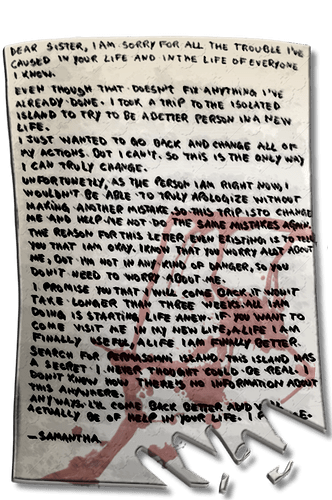 DEAR SISTER, I AM SORRY FOR ALL THE TROUBLE I'VE
CAUSED IN YOUR LIFE AND IN THE LIFE OF EVERYONE
I KNOW.
EVEN THOUGH THAT DOESN'T FIX ANYTHING I'VE
ALREADY DONE. I TOOK A TRIP TO THE ISOLATED
ISLAND TO TRY TO BE A BETTER PERSON IN A NEW
LIFE.
I JUST WANTED TO GO BACK AND CHANGE ALL OF
MY ACTIONS. BUT I CAN'T. SO THIS IS THE ONLY WAY
I CAN TRULY CHANGE.
UNFORTUNETLY, AS THE PERSON I AM RIGHT NOW, I
WOULDN'T BE ABLE TO TRULY APOLOGIZE WITHOUT
MAKING ANOTHER MISTAKE SO THIS TRIP IS TO CHANGE
ME AND HELP ME NOT DO THE SAME MISTAKES AGAIN
THE REASON FOR THIS LETTER EVEN EXISTING IS TO TELL
YOU THAT I AM OKAY. I KNOW THAT YOU WORRY ALOT ABOUT
ME, BUT I'M NOT IN ANY KIND OF DANGER, SO YOU
DON'T NEED TO WORRY ABOUT ME.
I PROMISE YOU THAT I WILL COME BACK. IT WON'T
TAKE LONGER THAN THREE WEEKS. ALL I AM
DOING IS STARTING LIFE ANEW. IF YOU WANT TO
COME VISIT ME IN MY NEW LIFE, A LIFE I AM
FINALLY USEFUL, A LIFE I AM FINALLY BETTER.
SEARCH FOR ISLAND, THIS ISLAND HAS
A SECRET I NEVER THOUGHT COULD BE REAL. I
DON'T KNOW HOW THERE'S NO INFORMATION ABOUT
THIS ANYWHERE.
ANYWAY, I'LL COME BACK BETTER AND
ACTUALLY BE OF HELP IN YOUR LIFE. I
—SAMANTHA